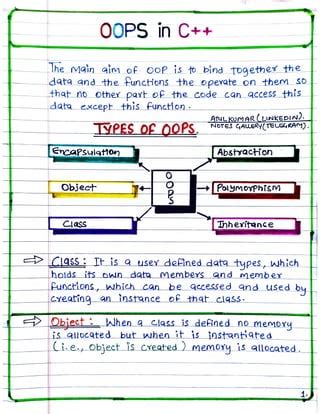 OOPS in C++
The main aim of OOP is to bind together the
data and the functions the operate on them so
that no other part of the code can access this
data except this function.
ANILKUMAR (LINKEDIN).
NOTES GALLERY(TELEGRAM).
TYPES OF OOPS.
Encapsulation
Abstraction
Object
OOPS
Polymorphism
Class
Inheritance
⇒ Class : It is a user defined data types, which
holds its own data members and member
functions, which can be accessed and used by
creating an instance of that class.
⇒ Object : When a class is defined no memory
is allocated but when it is instantiated
(i.e., object is created) memory is allocated.
1.